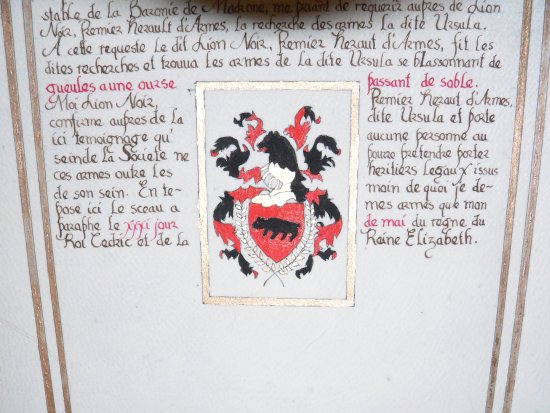 stable de la Baronie de Madrone, me priant de requerir aupres de Lion
Noir, Premier Herault d'Armes, la recherche des armes la dite Ursula.
A cette requeste le dit Lion Noir, Premier Heraut d'Armes, fit les
dites recherches et trouva les armes de la dite Ursula se blasonnant de
gueules a une ourse passant de sable.
Moi Lion Noir, Premier Heraut d'Armes,
confirme aupres de la dite Ursula et porte
ici temoignage qu' aucune personne au
sein de la Societe ne pourra pretendre porter
ces armes outre les heritiers legaux issus
de son sein. En te- moin de quoi je de-
pose ici le sceau a mes armes que mon
paraphe le xxxi jour de mai du regne du
Roi Cedric et de la Raine Elizabeth.